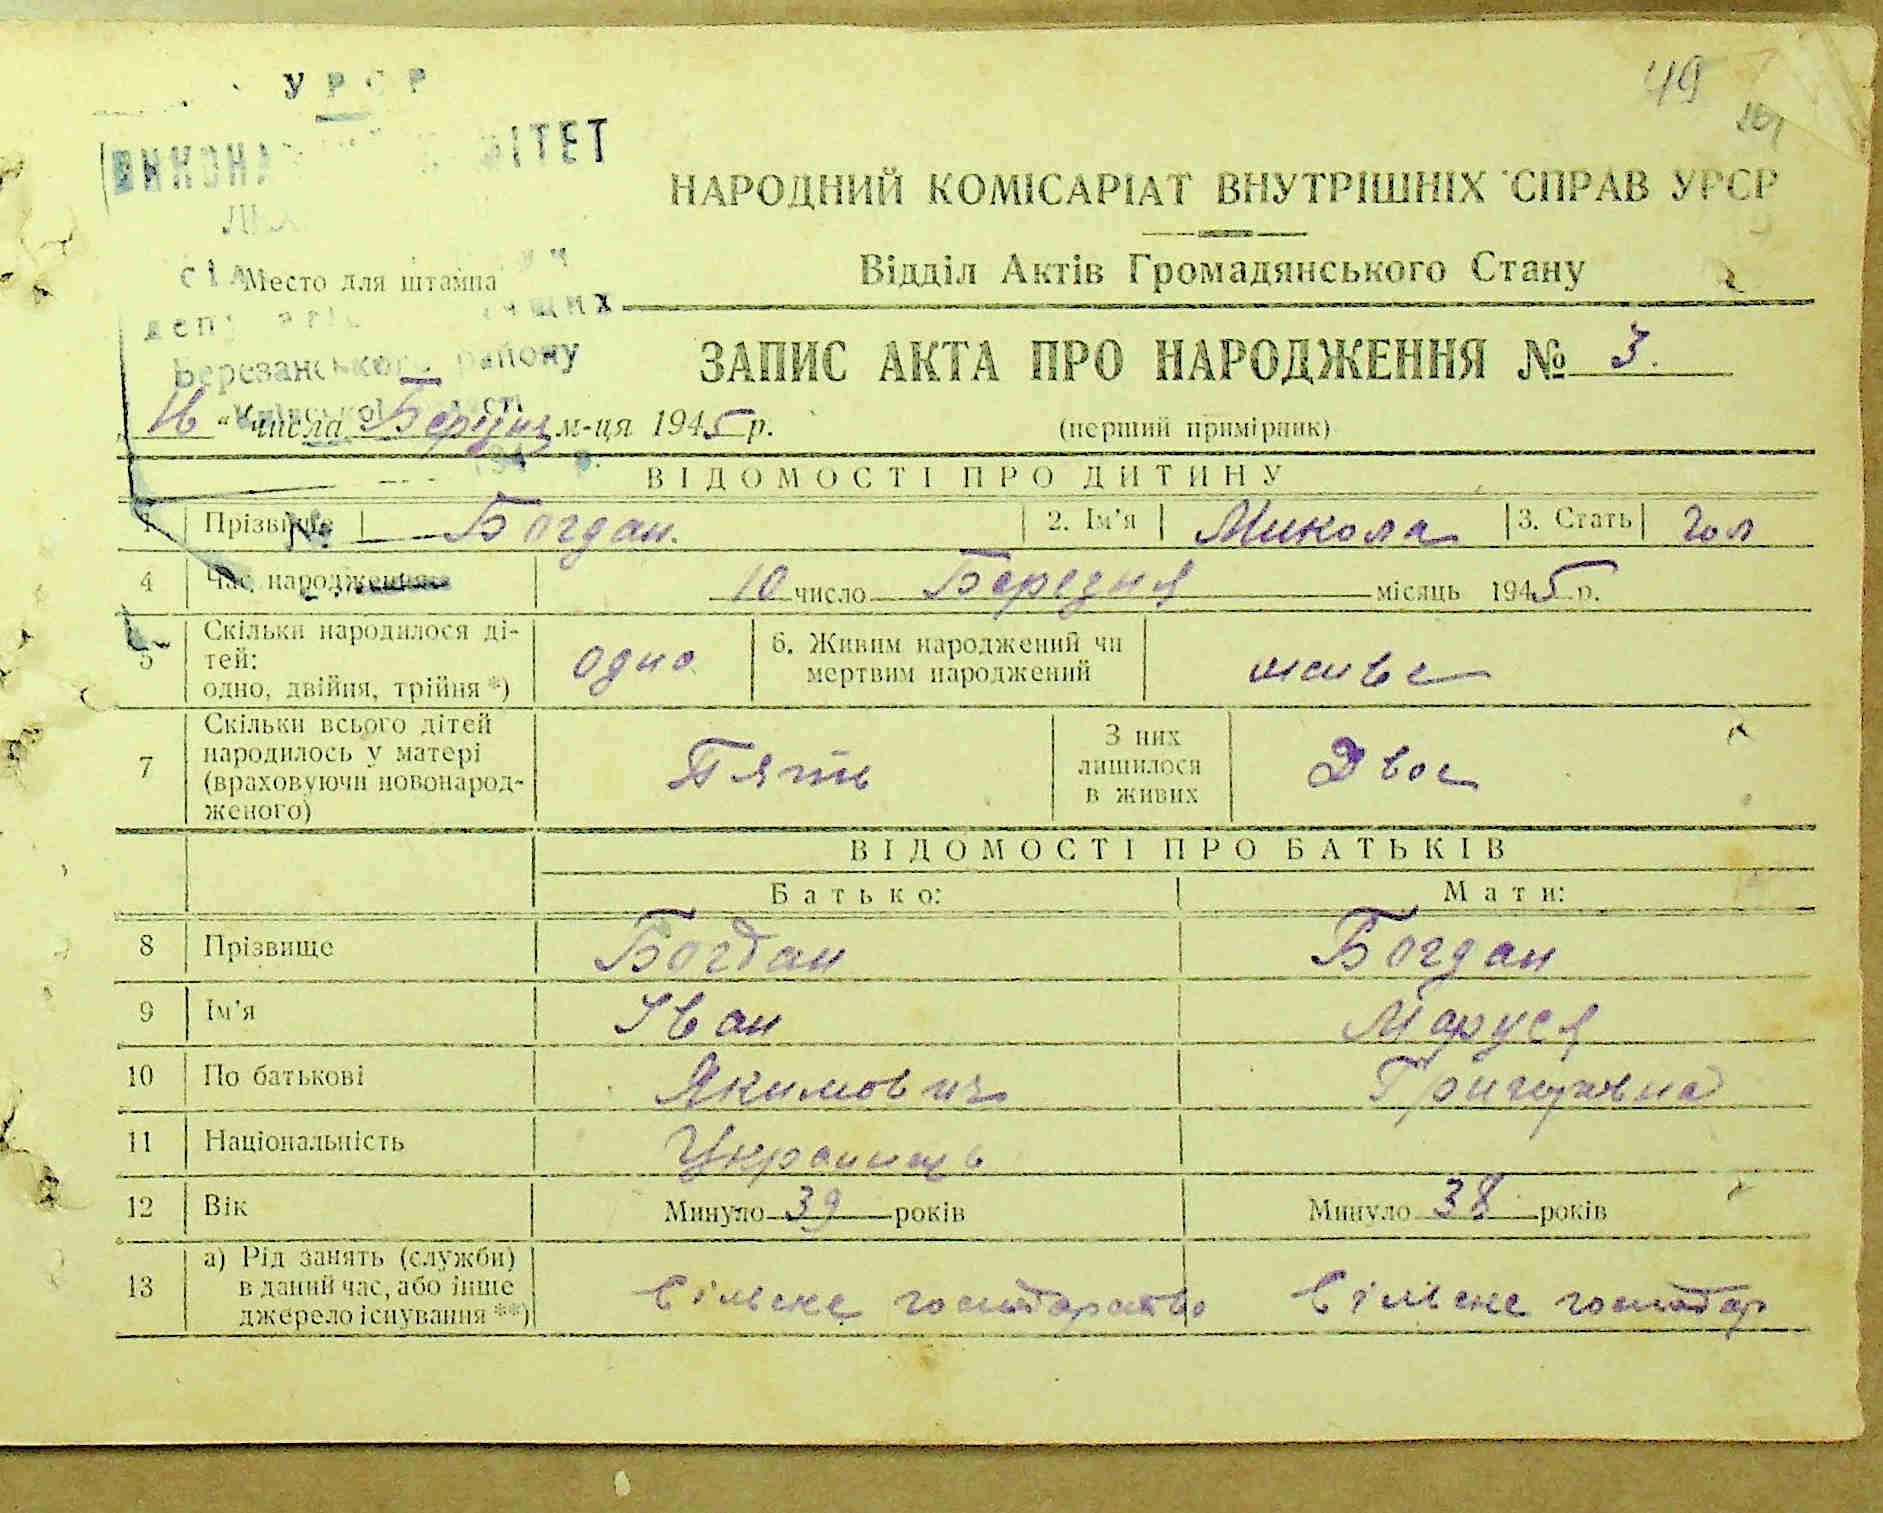 УРСР
49
НАРОДНИЙ КОМІСАРІАТ ВНУТРІШНІХ СПРАВ УРСР
Відділ Актів Громадянського Стану
Место для штампа
Березанського району
ЗАПИС АКТА ПРО НАРОДЖЕННЯ № 3.
„16“ числа Березня м-ця 1945 р. (перший примірник)
ВІДОМОСТІ ПРО ДИТИНУ
1 Прізвище Богдан. 2. Ім'я Микола 3. Стать Чол
4 Час народження 10 число Березня місяць 1945 р.
5 Скільки народилося ді-
тей:
одно, двійня, трійня *) одно 6. Живим народжений чи
мертвим народжений живе
7 Скільки всього дітей
народилось у матері
(враховуючи новонарод-
женого) Пять З них
лишилося
в живих Двоє
ВІДОМОСТІ ПРО БАТЬКІВ
Батько: Мати:
8 Прізвище Богдан Богдан
9 Ім'я Іван Маруся
10 По батькові Якимович Григоровна
11 Національність Українець
12 Вік Минуло 39 років Минуло 38 років
13 а) Рід занять (служби)
в даний час, або інше
джерело існування **) Сільске господарство Сільске господар